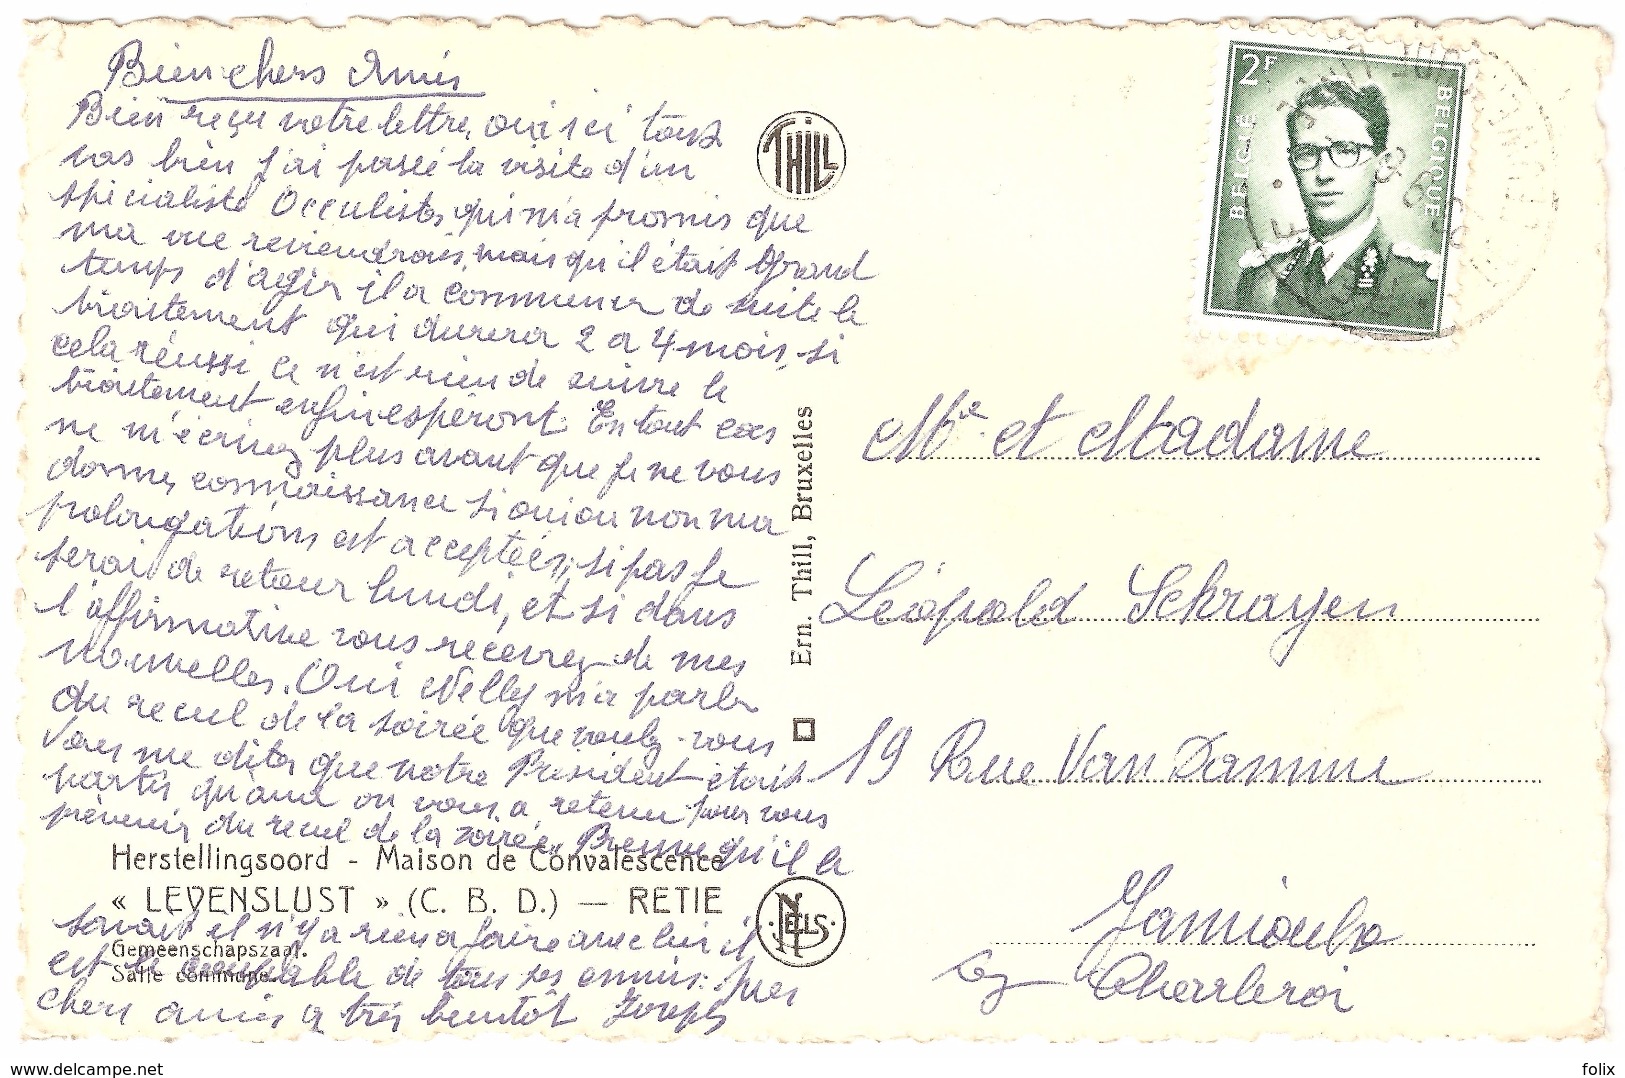 Bien chers Amis
Bien reçu votre lettre, oui ici tout
vas bien j'ai passé la visite d'un
spécialiste Occulistes qui m'a promis que
ma vue reviendrais, mais qu'il était grand
temps d'agir il a commencer de suite le
traitement qui durera 2 a 4 mois, si
cela réussi ce n'est rien de suivre le
traitement enfin espéront. En tout cas
ne m'écrivez plus avant que je ne vous
donne connaissance si oui ou non ma
prolongations est acceptées, si pas je
serai de retour lundi, et si dans
l'affirmative vous recevrez de mes
nouvelles. Oui Nelly m'a parler
du recul de la soirée que voulez-vous
Vous me dites que votre Président était
partis quand on vous a retenu pour vous
prévenir du recul de la soirée. Preuve qu'il le
savait il n'y a rien a faire avec lui il
est le de tous ses ennuis.
chers amis a très bientôt Joseph
Herstellingsoord - Maison de Convalescence
« LEVENSLUST » (C. B. D.) — RETIE
Gemeenschapszaal.
Salle commune.
THILL
Ern. Thill, Bruxelles
NELS
2F
BELGIE
BELGIQUE
Mr et Madame
Léopold Schrayen
19 Rue Van Damme
Jamioulx
Charleroi
www.delcampe.net
folix